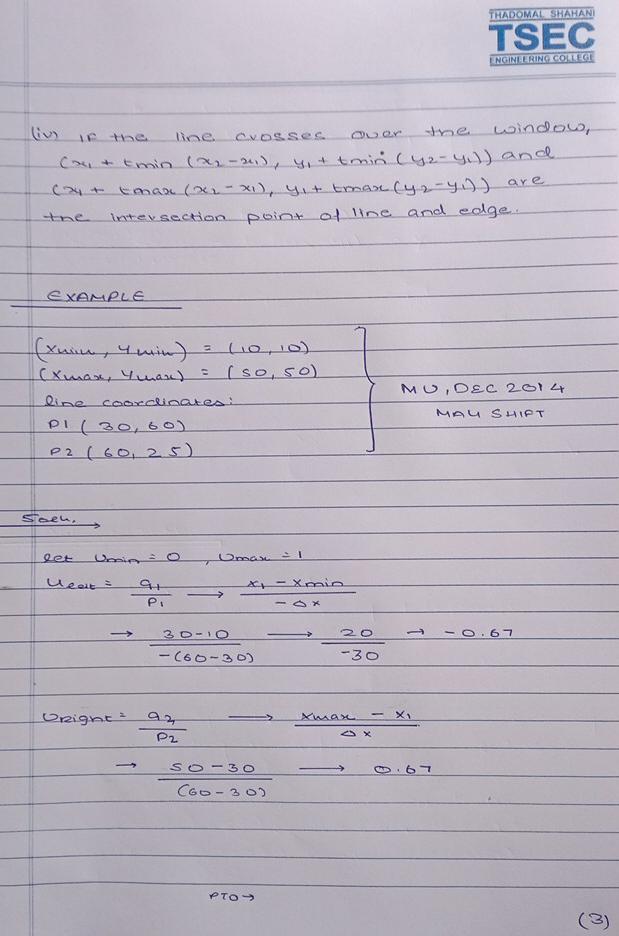 THADOMAL SHAHANI
TSEC
ENGINEERING COLLEGE
(iv) IF the line crosses over the window,
(x1 + tmin (x2-x1), y1 + tmin (y2-y1)) and
(x1 + tmax (x2-x1), y1 + tmax (y2-y1)) are
the intersection point of line and edge.
EXAMPLE
(Xmin, Ymin) = (10, 10)
(Xmax, Ymax) = (50, 50)
line coordinates:
P1 (30, 60)
P2 (60, 25)
MU, DEC 2014
MAY SHIFT
Soln.
let Umin = 0 , Umax = 1
Uleft = q1/P1 → x1 - xmin/-Δx
→ 30-10/-(60-30) → 20/-30 → -0.67
Uright = q2/P2 → xmax - x1/Δx
→ 50-30/(60-30) → 0.67
PTO→
(3)